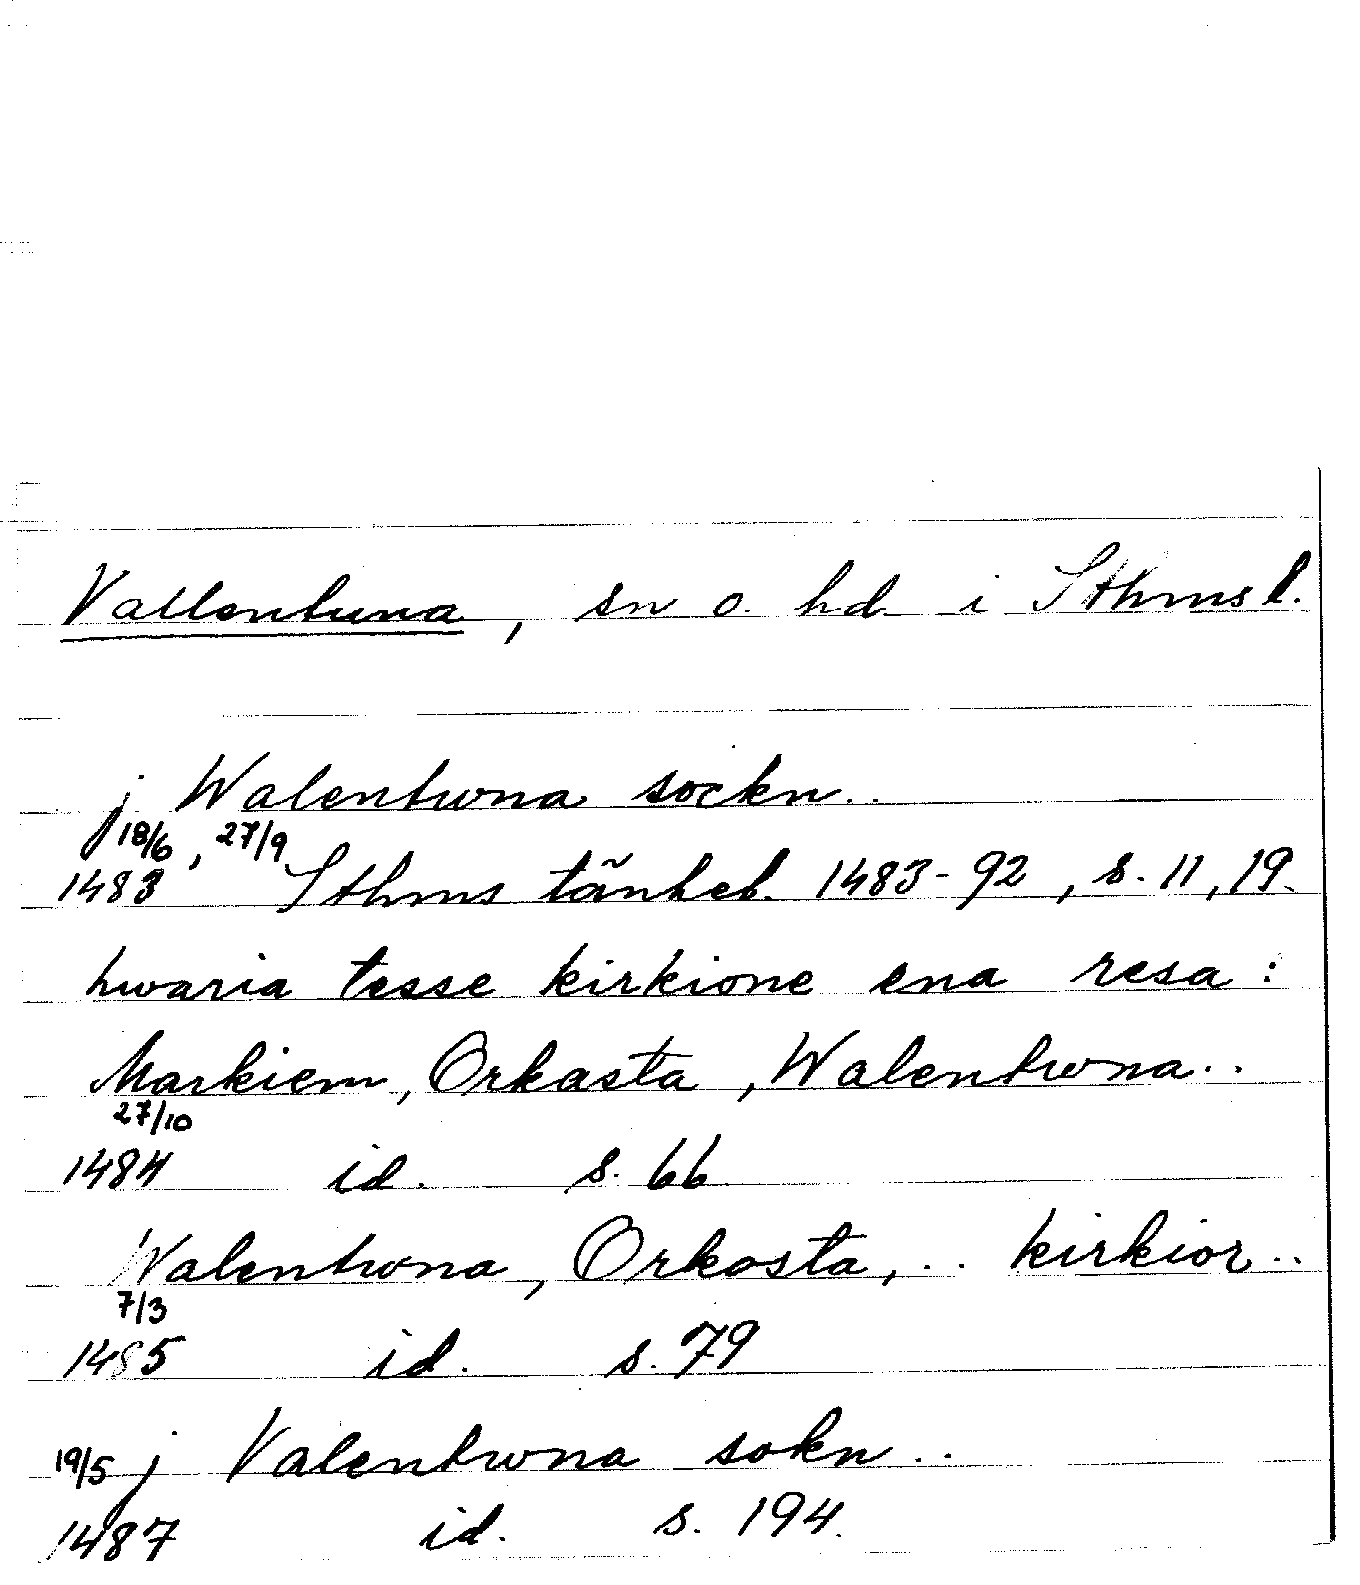 Vallentuna, sn o. hd. i Sthms l.
j Walentwna sockn..
18/6, 27/9
1483 Sthms tänkeb. 1483-92, s. 11, 19.
hwaria tesse kirkione ena resa:
Markiem, Orkasta, Walentwna..
27/10
1484 id. s. 66
Walentwna, Orkosta, .. kirkior..
7/3
1485 id. s. 79
19/5 j Valentwna sokn..
1487 id. s. 194.